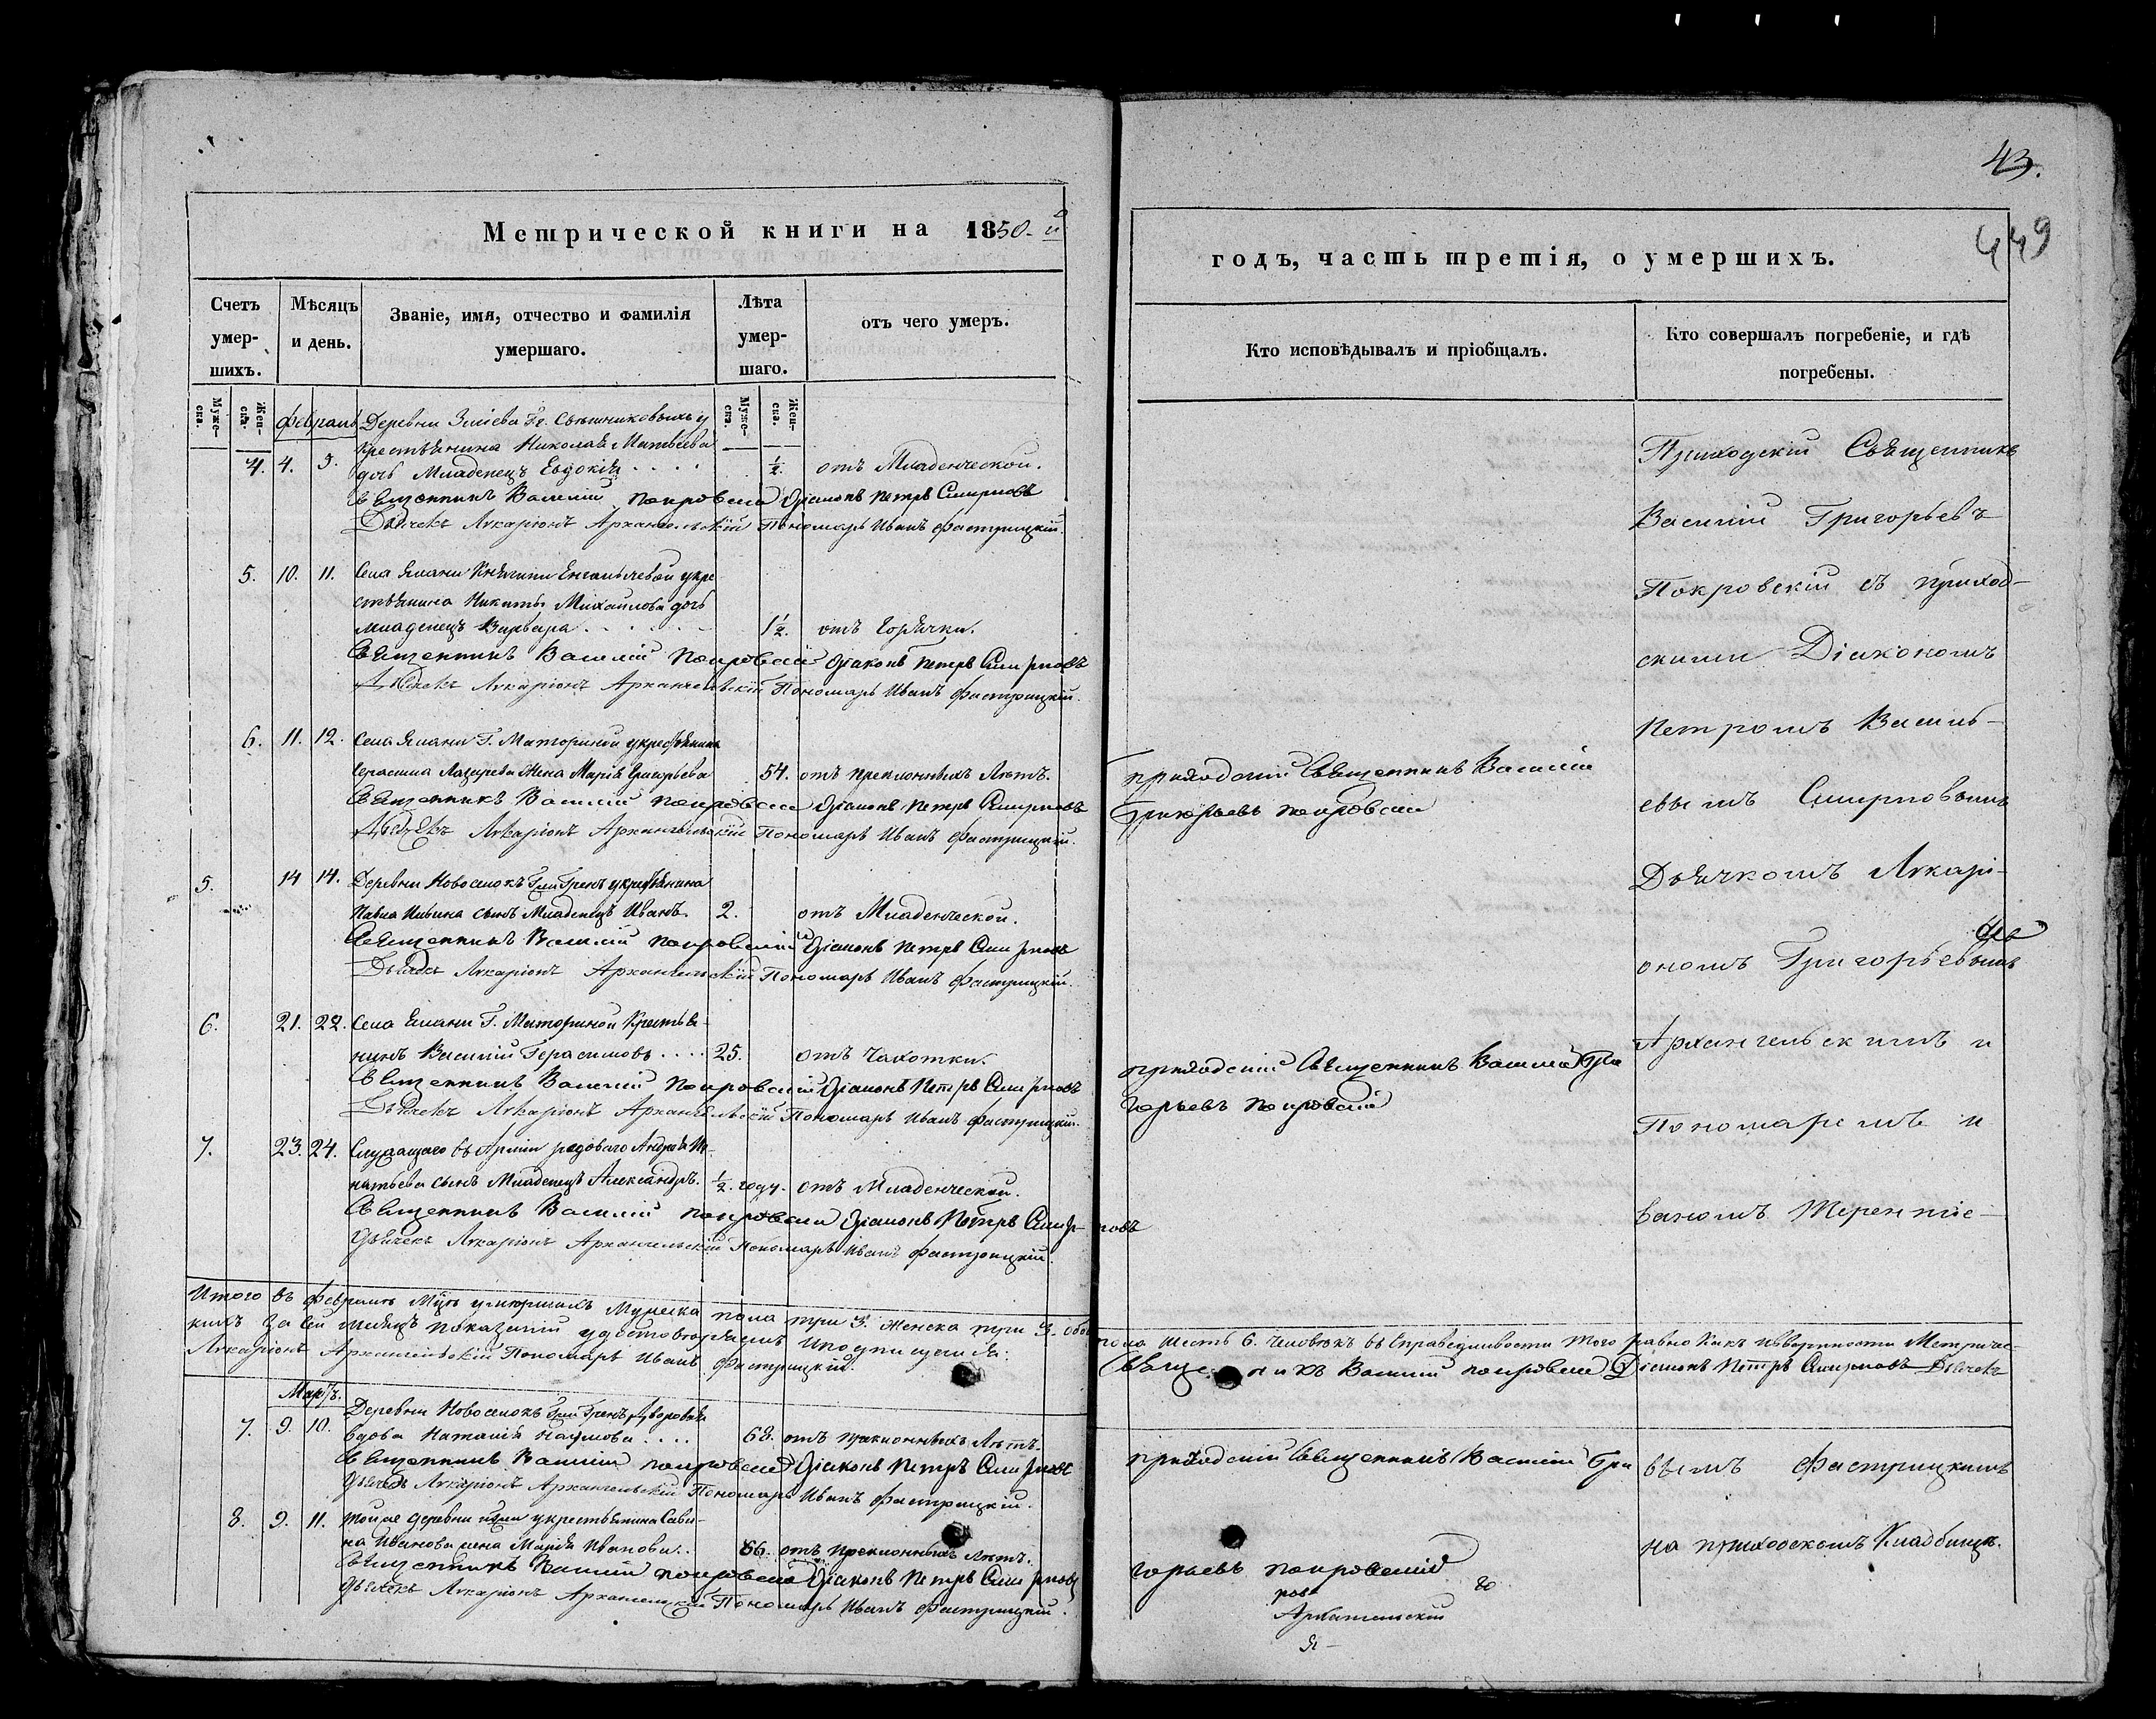 Метрической книги на 1850-й
Счетъ умер-шихъ.
Мѣсяцъ и день.
Званіе, имя, отчество и фамилія умершаго.
Лѣта умер-шаго.
отъ чего умеръ.
Муже-ска.
Жен-ска.
Муже-ска.
Жен-ска.
февраль Деревни Г.
крестьянина Николая Матвеева
4. 4. 5. дочь Младенецъ Евдокия . . . . ½. отъ Младенческой.
Священникъ Василій Покровскій Діаконъ Петръ Смирновъ
Дьячекъ Иларіонъ Архангельскій Пономарь Иванъ Фастрицкій.
5. 10. 11. Села Княгини Енгалычевой у кре
стьянина Никиты Михаилова дочь
младенецъ Варвара . . . . . 1½. отъ Горячки.
Священникъ Василій Покровскій Діаконъ Петръ Смирновъ
Дьячекъ Иларіонъ Архангельскій Пономарь Иванъ Фастрицкій.
6. 11. 12. Села Г. Маториной у крестьянина
Герасима Лазарева Жена Марія Григорьева 54. отъ преклонныхъ Лѣтъ.
Священникъ Василій Покровскій Діаконъ Петръ Смирновъ
Дьячекъ Иларіонъ Архангельскій Пономарь Иванъ Фастрицкій.
5. 14 14. Деревни Новоселокъ у крестьянина
Павла Ильина сынъ Младенецъ Иванъ. 2. отъ Младенческой.
Священникъ Василій Покровскій Діаконъ Петръ Смирновъ
Дьячекъ Иларіонъ Архангельскій Пономарь Иванъ Фастрицкій.
6. 21. 22. Села Г. Маториной Крестья-
нинъ Василий Герасимовъ . . . . 25. отъ Чахотки.
Священникъ Василій Покровскій Діаконъ Петръ Смирновъ
Дьячекъ Иларіонъ Архангельскій Пономарь Иванъ Фастрицкій.
7. 23. 24. Служащаго въ Арміи рядоваго Андрея Иг-
натьева сынъ Младенецъ Александръ. ½. году. отъ Младенческой.
Священникъ Василій Покровскій Діаконъ Петръ Смирновъ
Дьячекъ Иларіонъ Архангельскій Пономарь Иванъ Фастрицкій.
Итого въ февралѣ Мцѣ умершихъ Мужеска пола три 3. Женска три 3. обоего
пола шесть 6. Человѣкъ въ Справедливости того равно какъ и вѣрности Метричес-
кихъ за сей мѣсяцъ показаний удостовѣряемъ и подписуемся:
Священникъ Василій Покровскій Діаконъ Петръ Смирновъ Дьячекъ
Иларіонъ Архангельскій Пономарь Иванъ Фастрицкій.
Мартъ.
Деревни Новоселокъ дворовая
7. 9. 10. вдова Наталія Наумова . . . . 68. отъ преклонныхъ Лѣтъ.
Священникъ Василій Покровскій Діаконъ Петръ Смирновъ
Дьячекъ Иларіонъ Архангельскій Пономарь Иванъ Фастрицкій.
8. 9. 11. Той же деревни у крестьянина Сави-
на Иванова жена Марія Иванова. . 66. отъ преклонныхъ Лѣтъ.
Священникъ Василій Покровскій Діаконъ Петръ Смирновъ
Дьячекъ Иларіонъ Архангельскій Пономарь Иванъ Фастрицкій.
43.
449
годъ, часть третія, о умершихъ.
Кто исповѣдывалъ и пріобщалъ.
Кто совершалъ погребеніе, и гдѣ погребены.
приходскій Священникъ Василій
Григорьевъ Покровскій
приходскій Священникъ Василій Гри
горьевъ Покровскій
приходскій Священникъ Василій Гри
горьевъ Покровскій
Архангельскій
Приходскій Священникъ
Василій Григорьевъ
Покровскій съ приход-
скими Діакономъ
Петромъ Василь-
евымъ Смирновымъ
Дьячкомъ Илари-
ономъ Григорьевымъ
Архангельскимъ и
Пономаремъ и
ваномъ Терентіе-
вымъ Фастрицкимъ
на приходскомъ Кладбищѣ.